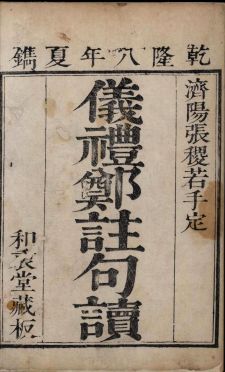 乾隆八年夏鐫
濟陽張稷若手定
儀禮鄭註句讀
和衷堂藏板